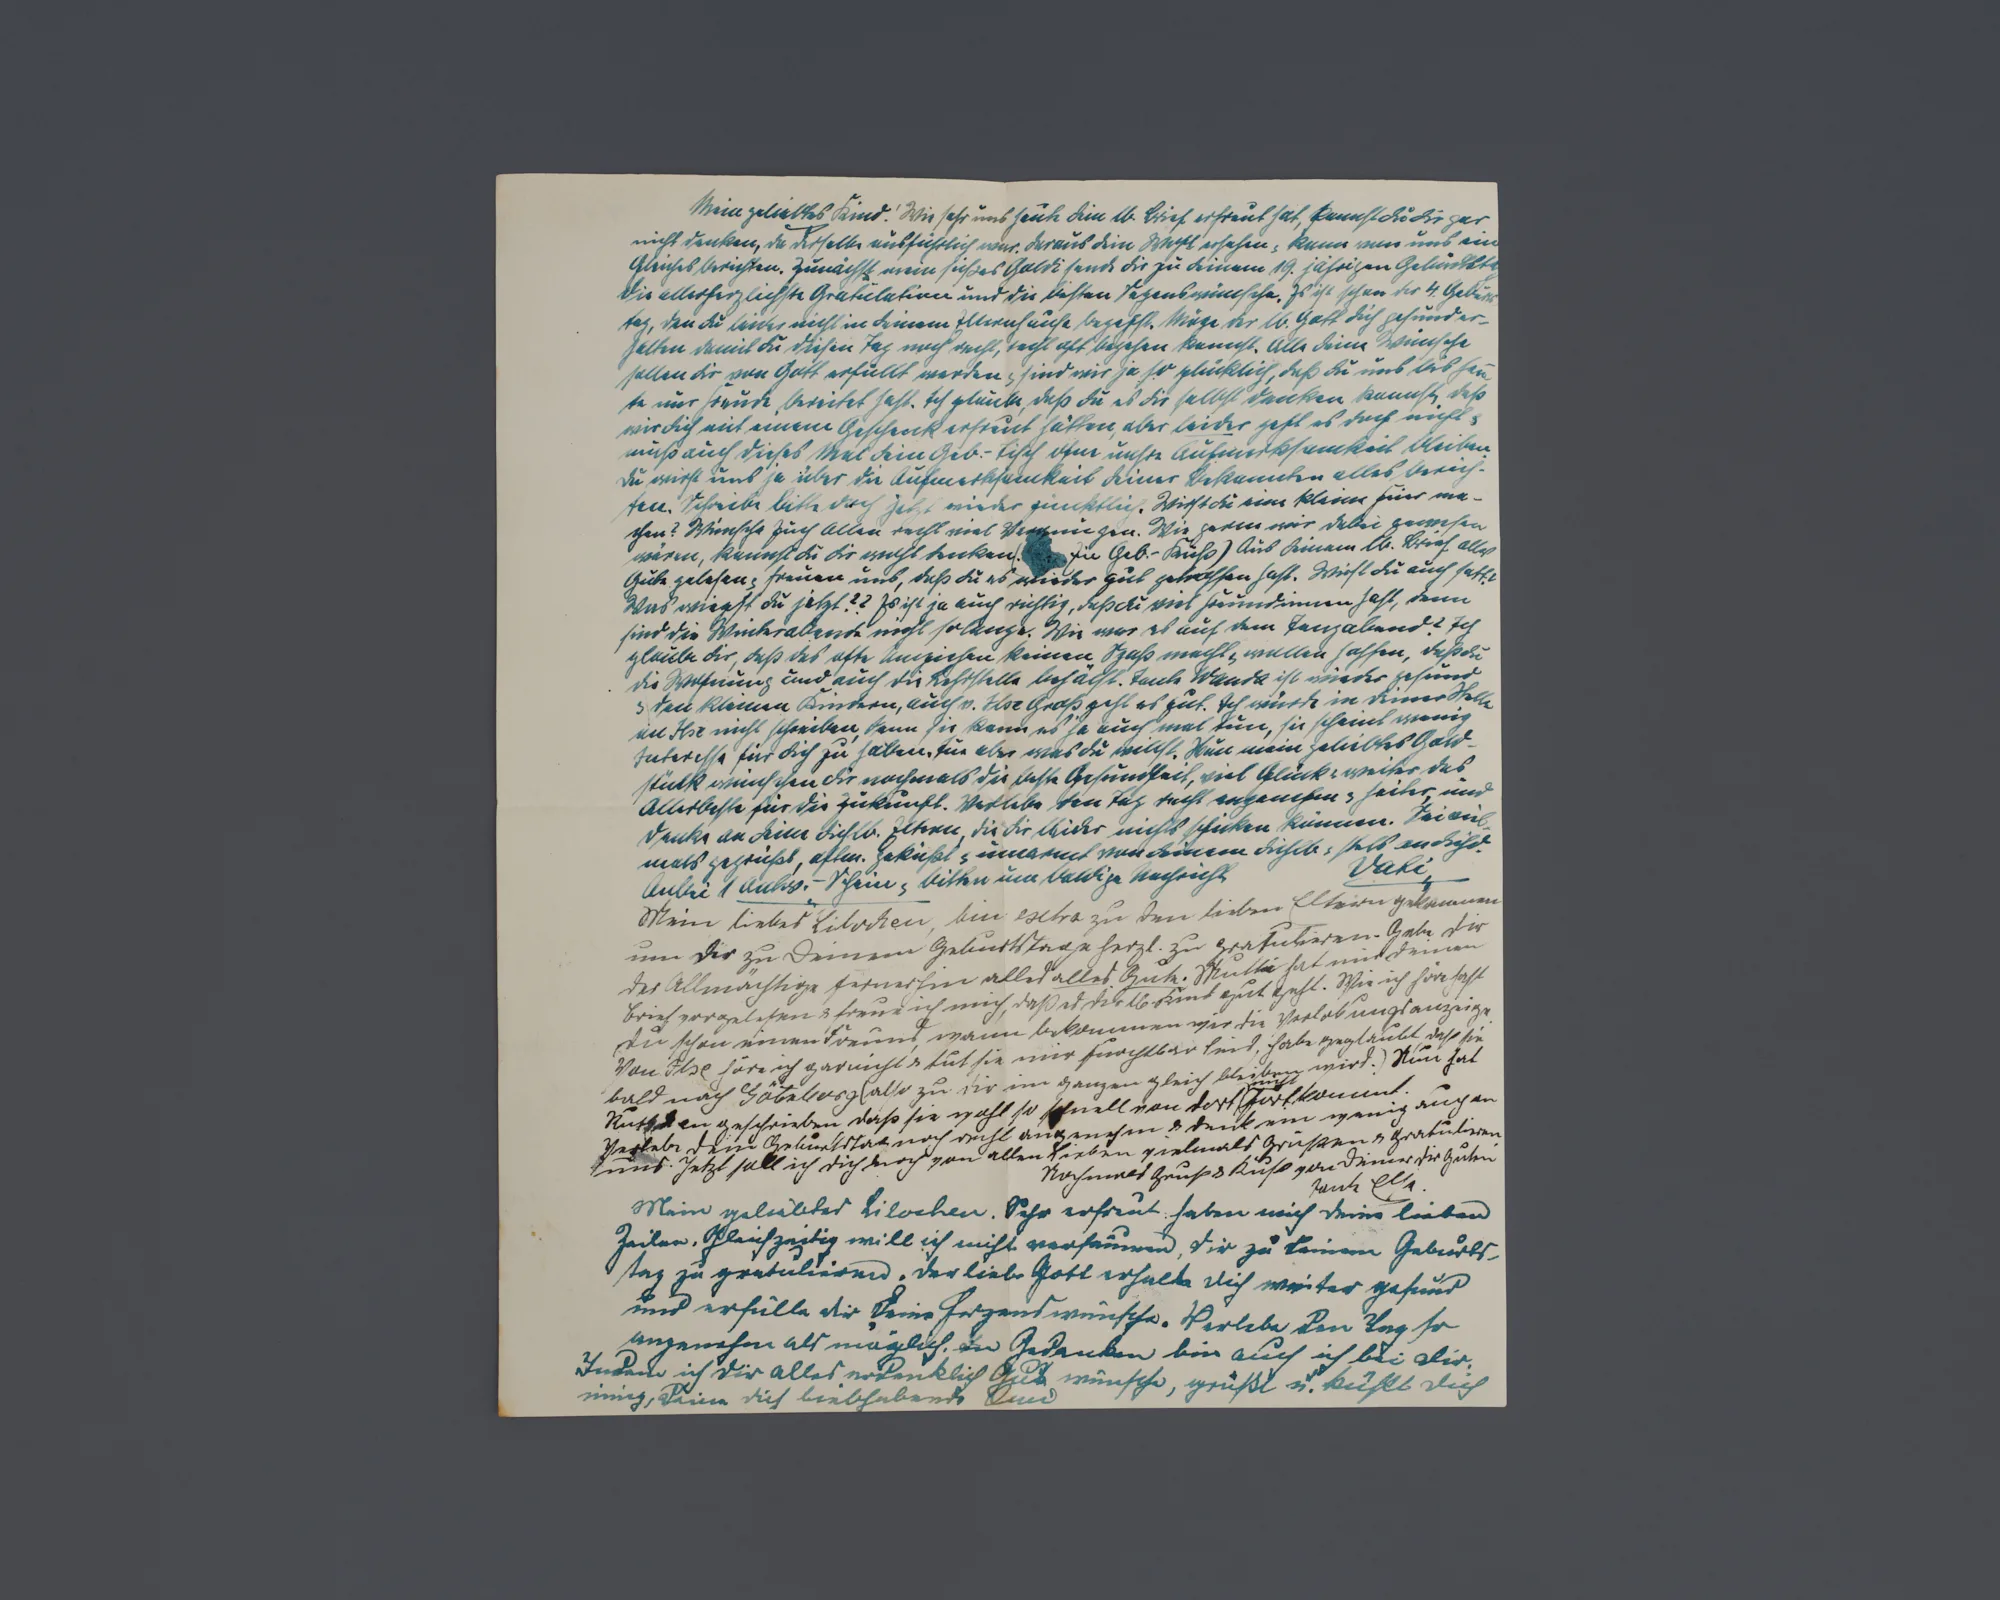 Mein geliebtes Kind! Wie sehr uns heute dein lb. Brief erfreut hat, kannst du dir gar
nicht denken, da derselbe ausführlich war. Daraus dein Wohl ersehen, kann von uns ein
Gleiches berichten. Zunächst mein süßes Goldi sende dir zu deinem 19. jährigen Geburtstg
die allerherzlichste Gratulation und die besten Segenswünsche. Es ist schon der 4. Geburts
tag, den du leider nicht in deinem Elternhause begehst. Möge der lb. Gott dich gesund er-
halten damit du diesen Tag noch recht, recht oft begehen kannst. Alle deine Wünsche
sollen dir von Gott erfüllt werden, sind wir ja so glücklich, daß du uns bis heu
te nur Freude bereitet hast. Ich glaube, daß du es dir selbst denken kannst, daß
wir dich mit einem Geschenk erfreut hätten, aber leider geht es doch nicht &
muß auch dieses Mal dein Geb.-Tisch ohne unsre Aufmerksamkeit bleiben.
Du wirst uns ja über die Aufmerksamkeit deiner Bekannten alles berich-
ten. Schreibe bitte doch jetzt wieder pünktlich. Wirst du eine kleine Feier ma-
chen? Wünsche Euch Allen recht viel Vergnügen. Wie gerne wir dabei gewesen
wären, kannst du dir wohl denken. ( Ein Geb.-Kuß) Aus deinem lb. Brief alles
Gute gelesen & freuen uns, daß du es wieder gut getroffen hast. Wirst du auch satt?
Was wiegst du jetzt?? Es ist ja auch richtig, daß du viel Freundinnen hast, denn
sind die Winterabende nicht so lange. Wie war es auf dem Tanzabend? Ich
glaube dir, daß das ofte Umziehen keinen Spaß macht & wollen hoffen, daß du
die Wohnung und auch die Lehrstelle behälst. Tante Wanda ist wieder gesund
& den kleinen Kindern, auch v. Ilse Groß geht es gut. Ich würde in deiner Stelle
an Ilse nicht schreiben, denn sie kann es ja auch mal tun, sie scheint wenig
Interesse für dich zu haben. Tue aber was du willst. Nun mein geliebtes Gold-
stück wünschen dir nochmals die beste Gesundheit, viel Glück & weiter das
Allerbeste für die Zukunft. Verlebe den Tag recht angenehm & heiter, und
denke an deine dich lb. Eltern, die dir leider nichts schicken können. Sei viel-
mals gegrüßt, oftm. geküßt & umarmt von deinem dichlb & stets an dich d.
Anbei 1 Antw.-Schein & bitten um baldige Nachricht. Vati
Mein liebes Lilochen, bin extra zu den lieben Eltern gekommen
um Dir zu Deinem Geburtstage herzl. zu gratulieren. Gebe Dir
der Allmächtige fernerhin alles alles Gute. Mutti hat mir deinen
Brief vorgelesen & freue ich mich, daß es dir lb. Kind gut geht. Wie ich höre hast
Du schon einen Freund, wann bekommen wir die Verlobungsanzeige.
Von Ilse höre ich garnicht & tut sie mir furchtbar leid, habe geglaubt dass sie
bald nach Göteborg (also zu dir im ganzen gleich bleiben wird.) Nun hat
geschrieben daß sie wohl so schnell von dort nicht fortkommt.
Verlebe dein Geburtstag noch recht angenehm & denk ein wenig auch an
uns. Jetzt soll ich dich noch von allen Lieben vielmals Grüßen & gratulieren
Nochmals Gruß & Kuß von Deiner dir Guten
Tante Else.
Mein geliebtes Lilochen. Sehr erfreut haben mich deine lieben
Zeilen. Gleichzeitig will ich nicht versäumen, dir zu deinem Geburts-
tag zu gratulieren. Der liebe Gott erhalte dich weiter gesund
und erfülle dir deine Herzenswünsche. Verlebe den Tag so
angenehm als möglich, in Gedanken bin auch ich bei dir.
Indem ich dir alles erdenklich Gute wünsche, grüßt u. küßt dich
innig, deine dich liebhabende Omi